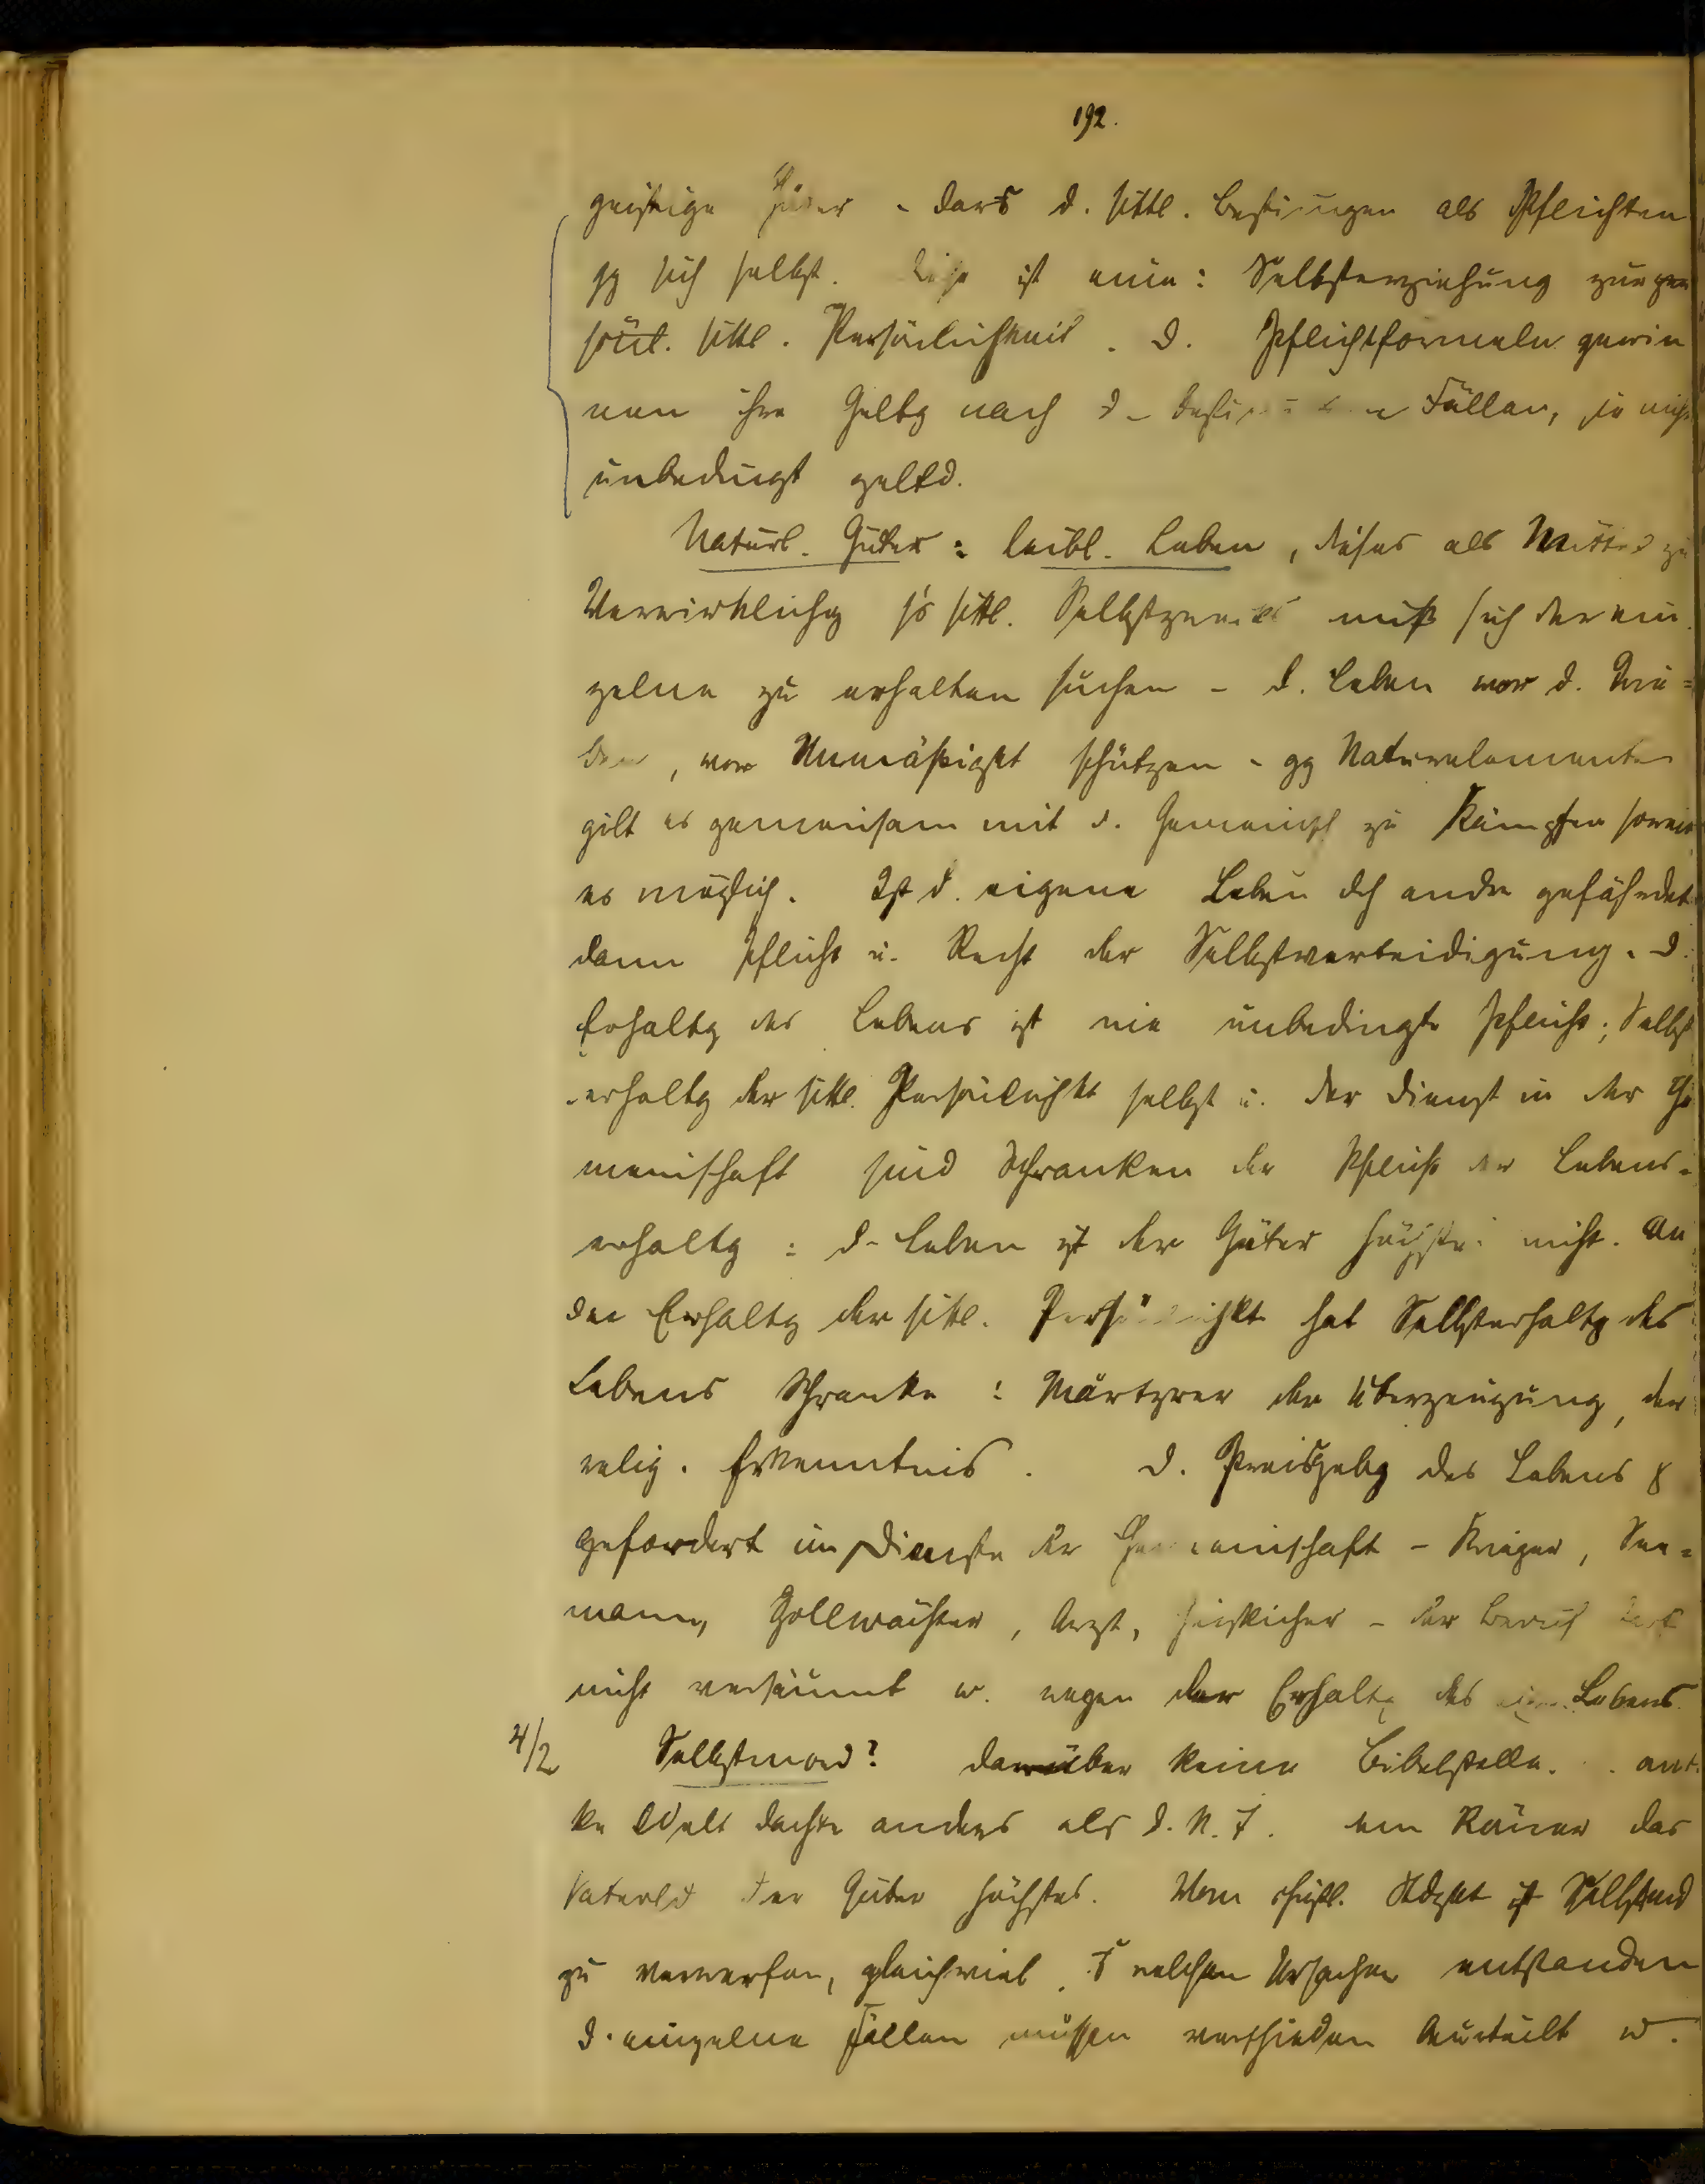 192.
geistige Güter - das d. sittl. Bestimgen als Pflichten
gg sich selbst. Diese ist eine: Selbsterziehung zur per
sönl. sittl. Persönlichkeit. D. Pflichtformeln gewin
nen ihre Geltg nach d. Fällen, sie nicht
unbedingt geltd.
Naturl. Güter: leibl. Leben, dieses als Mittel zu
Verwirklichg s's sittl. Selbstzweckes muß sich der ein
zelne zu erhalten suchen - d. Leben vor d. Trie=
ben, vor Unmäßigkt schützen - gg Naturelemente
gilt es gemeinsam mit d. Gemeinsch zu Kämpfen soweit
es möglich. Ist d. eigene Leben dch andre gefährdet
dann Pflicht u. Recht der Selbstverteidigung. D.
Erhaltg des Lebens ist nie unbedingte Pflicht; Selbst
erhaltg der sittl. Persönlichkt selbst u. der Dienst in der Ge
meinschaft sind Schranken der Pflicht der Lebens-
erhaltg: d. Leben ist der Güter höchstes nicht. An
der Erhaltg der sittl. Persönlichkt hat Selbsterhaltg des
Lebens Schranke: Märtyrer der Überzeugung, der
relig. Erkenntnis. D. Preisgabg des Lebens
gefordert im Dienste der Gemeinschaft - Krieger, See=
mann, Zollwächter, Arzt, Geistlicher - der Beruf darf
nicht versäumt w. wegen der Erhaltg des eign. Lebens.
4/2 Selbstmord? darüber keine Bibelstelle. anti
ke Welt dachte anders als d. N. T. dem Römer das
Vaterld der Güter höchstes. Vom christl. Stdpkt ist Selbstmd
zu verwerfen, gleichviel welchen Ursachen entstanden
d. einzelne Fällen müssen verschieden beurteilt w.